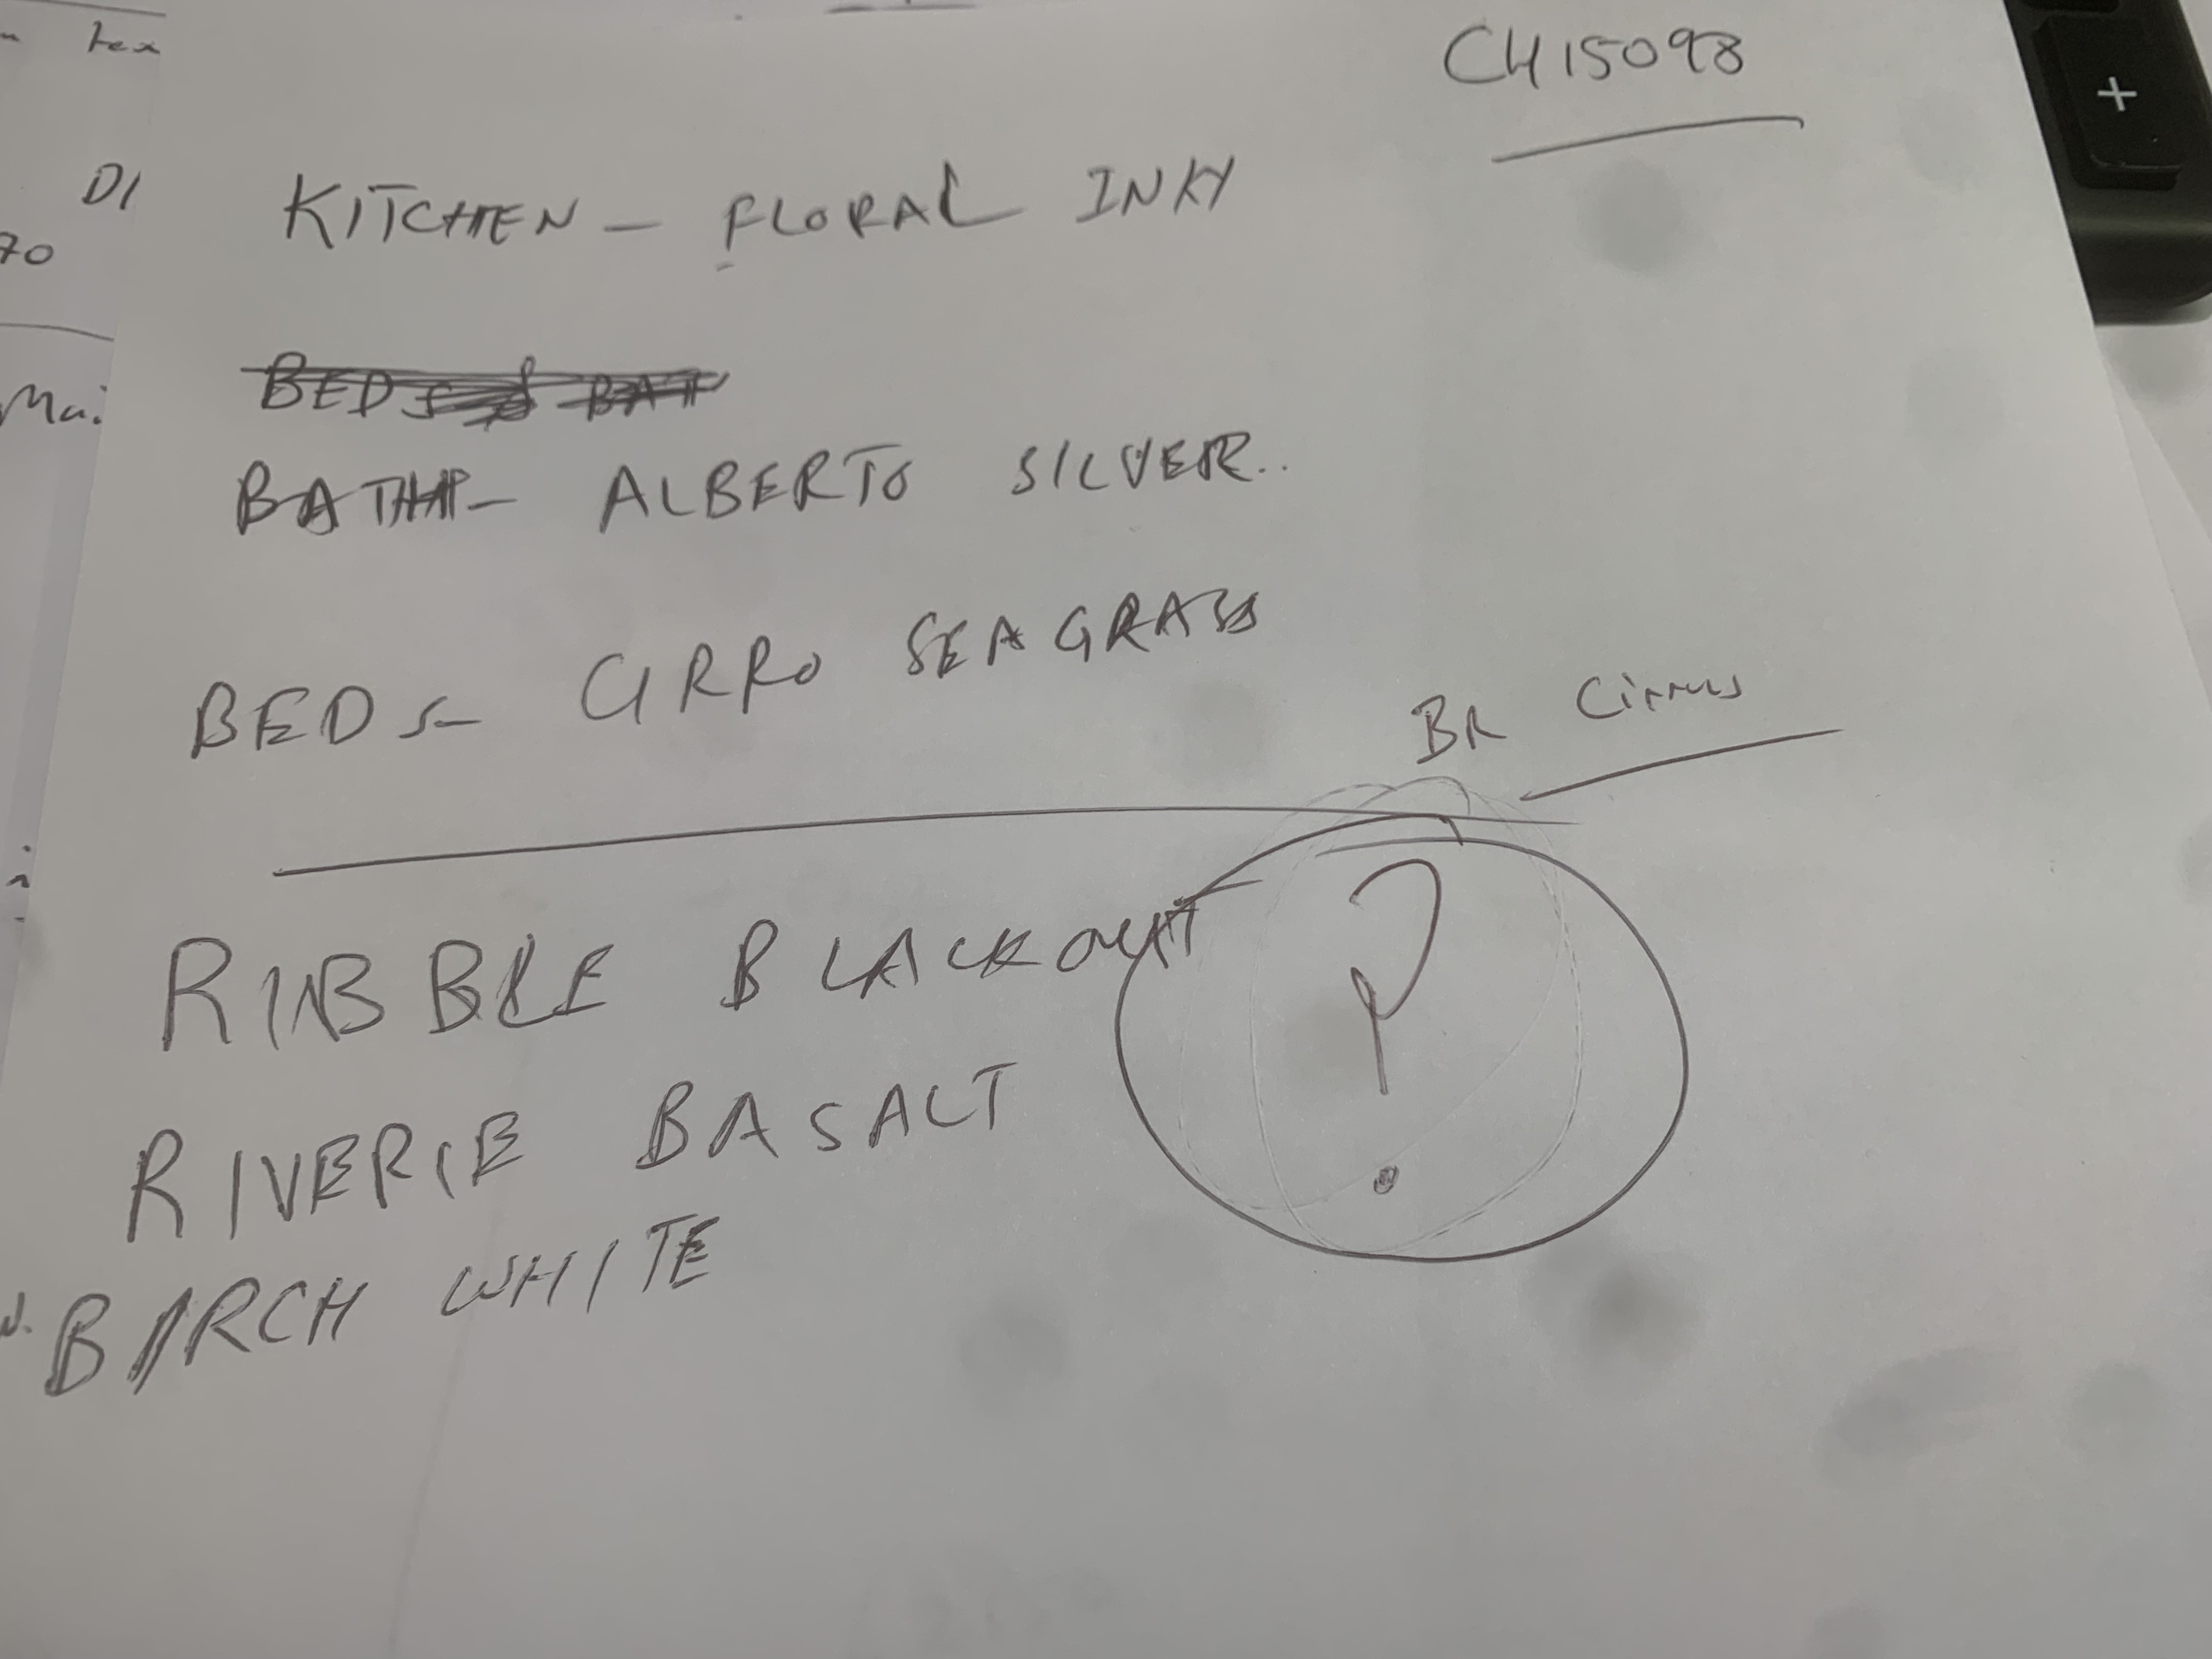 tex
CH15098
D1
KITCHEN - FLORAL INKY
70
BEDS BAT
Mai
BATH - ALBERTO SILVER..
BEDS - CIRRO SEAGRASS
BR Cirrus
RIBBLE BLACKOUT
?
RIVERIE BASALT
BIRCH WHITE
+